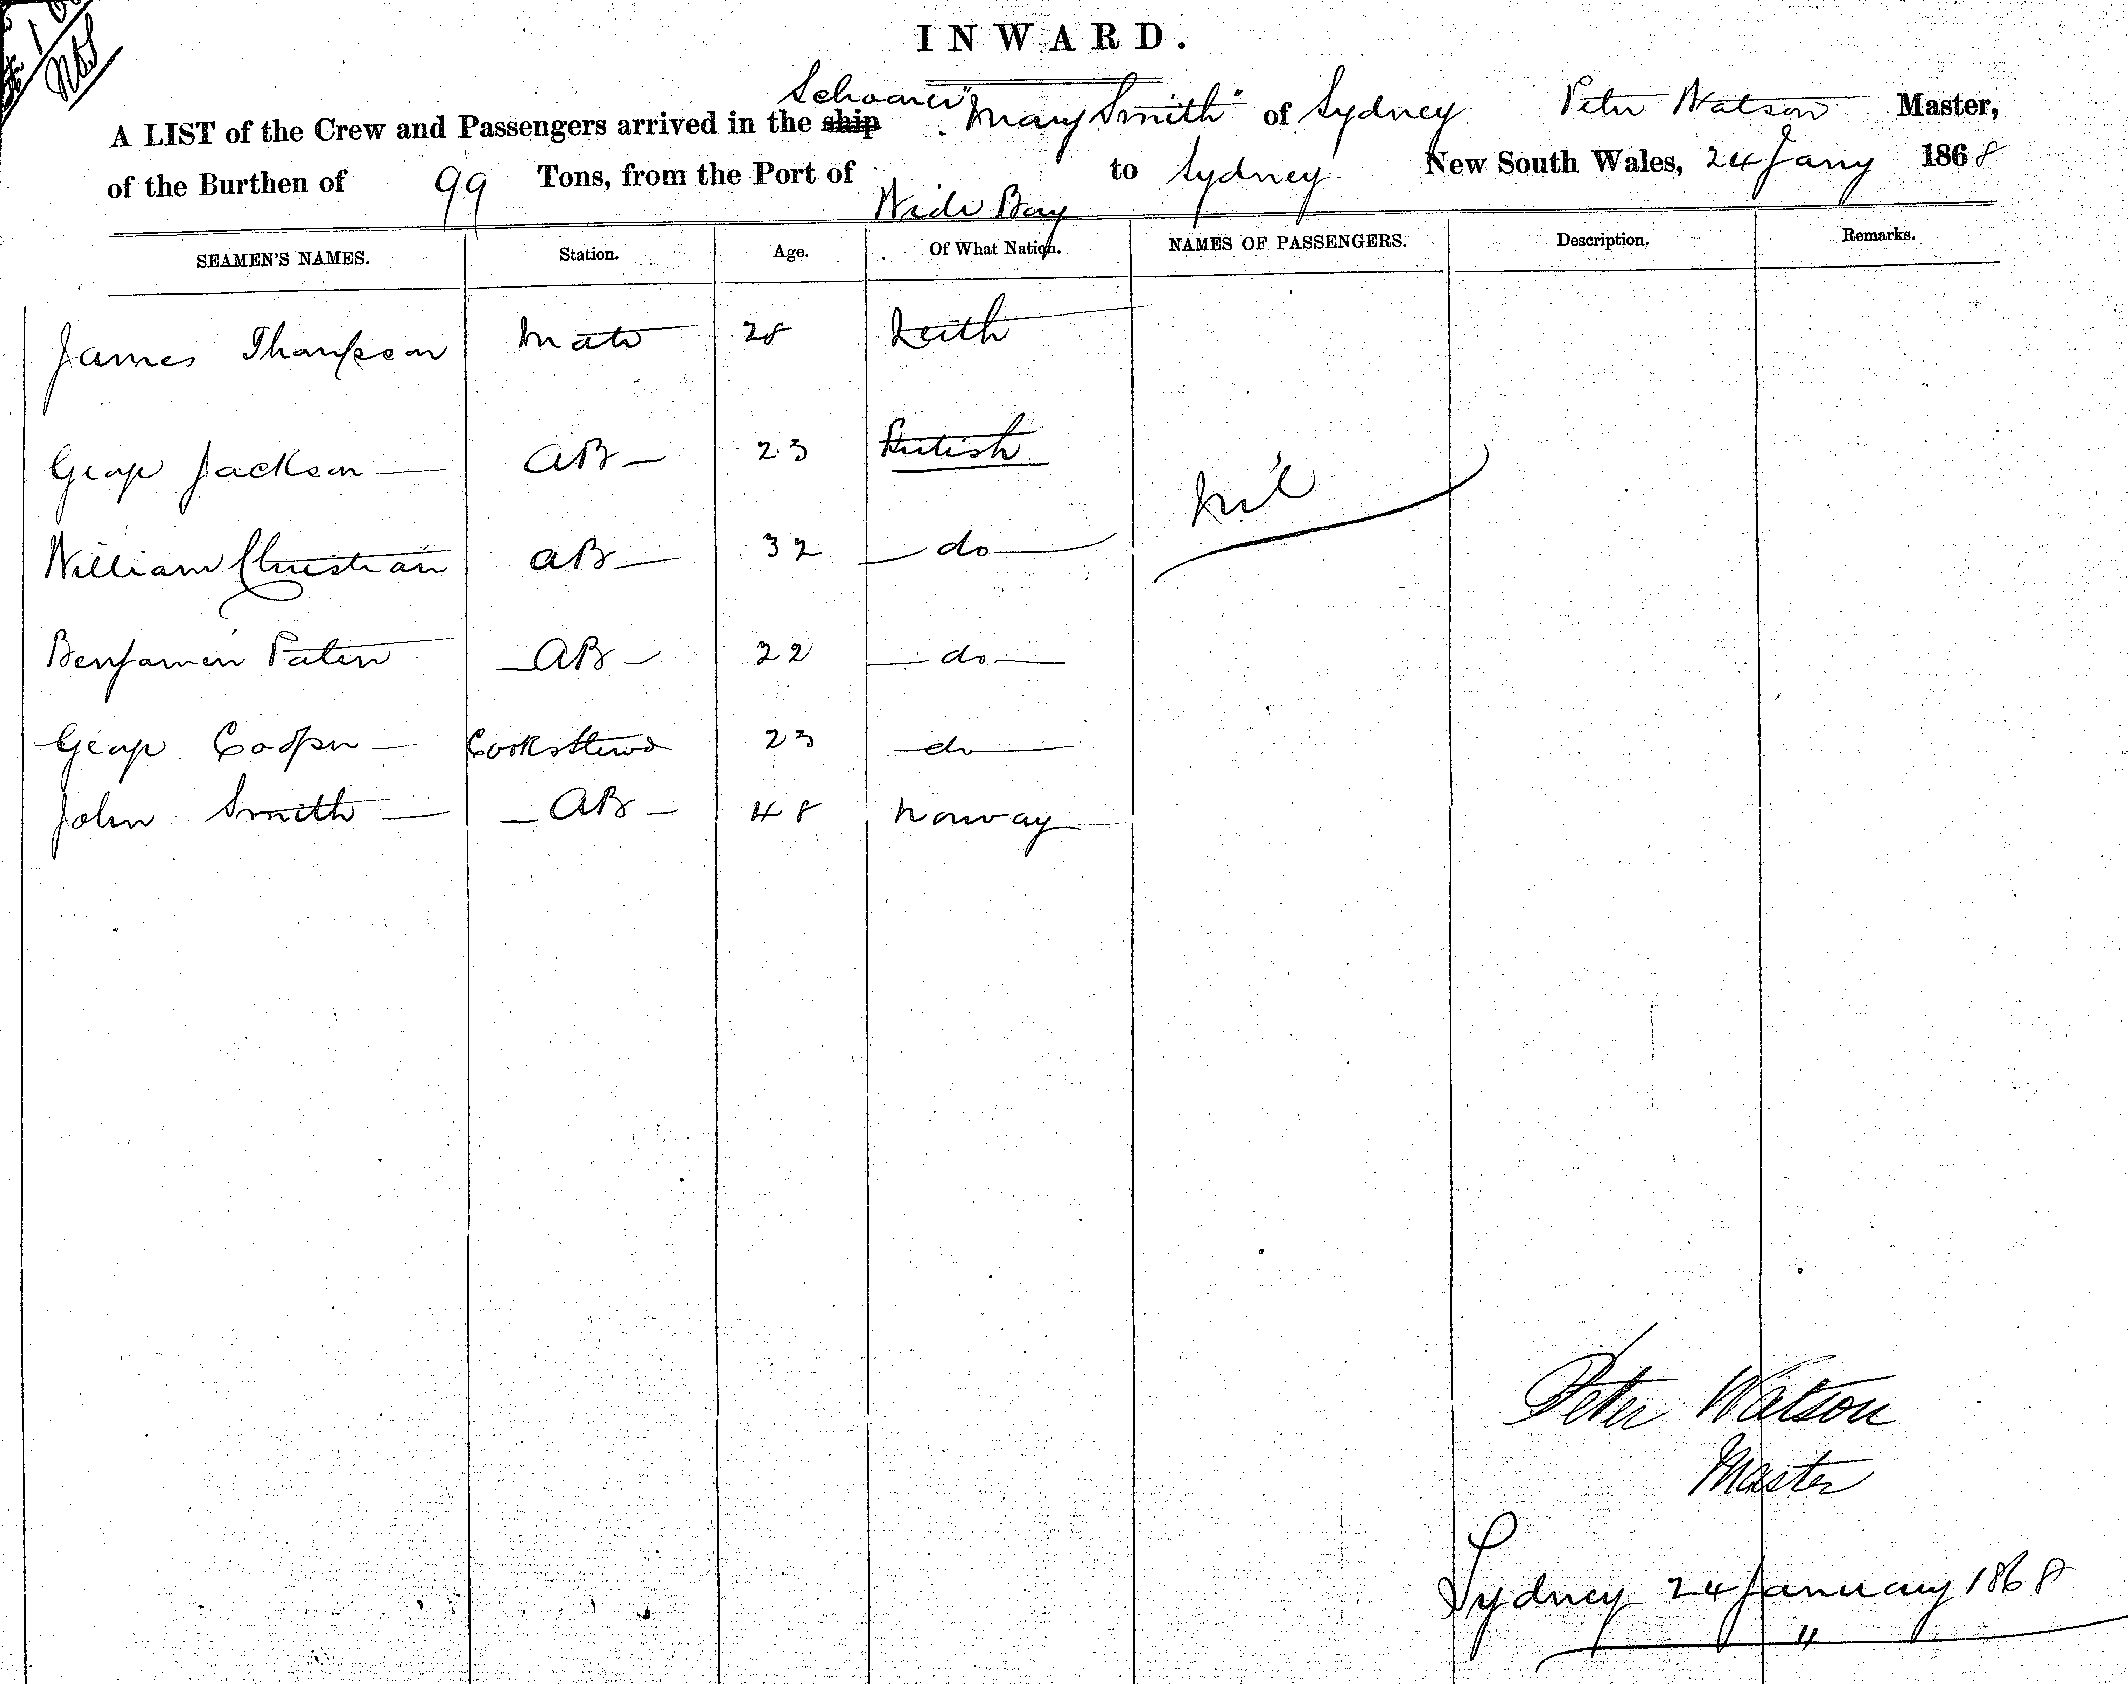 INWARD.
A LIST of the Crew and Passengers arrived in the ship Schooner "Mary Smith" of Sydney Peter Watson Master,
of the Burthen of 99 Tons, from the Port of Wide Bay to Sydney New South Wales, 24 Jany 1868
SEAMEN'S NAMES. Station. Age. Of What Nation. NAMES OF PASSENGERS. Description. Remarks.
James Thompson Mate 28 Leith
George Jackson AB 23 British
Nil
William Christian AB 32 do
Benjamin AB 22 do
George Cooper Cook & Stewd 23 do
John Smith AB 48 Norway
Peter Watson
Master
Sydney 24 January 1868